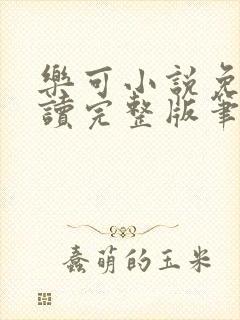 樂可小說免
讀完整版筆
蠢萌的玉米